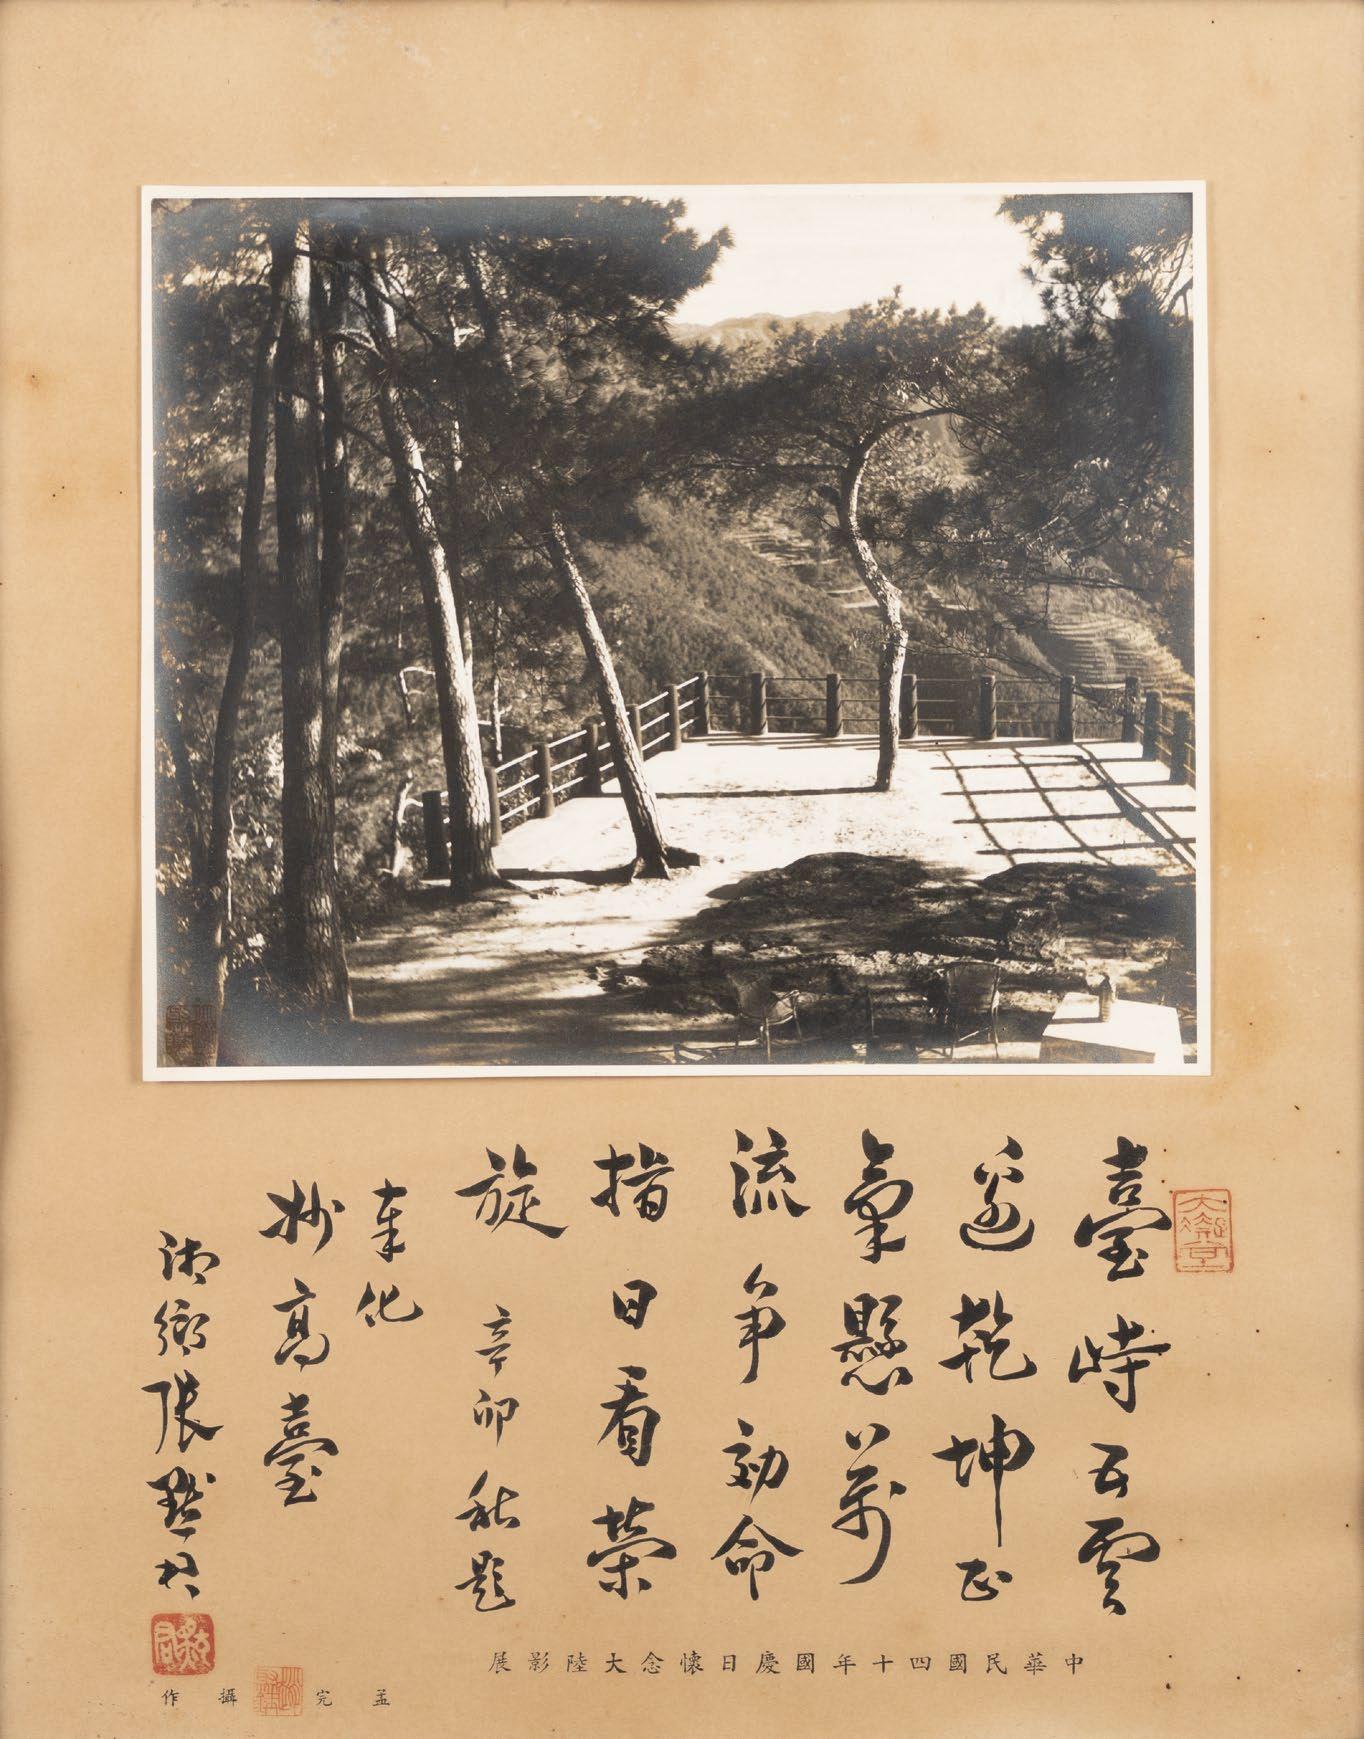 大凝堂
臺峙五雲
邊乾坤正
氣懸萬
流爭効命
指日看榮
旋 辛卯秋題
奉化
妙高臺
湘鄉張默君
默君
中華民國四十年國慶日懷念大陸影展
孟完攝作